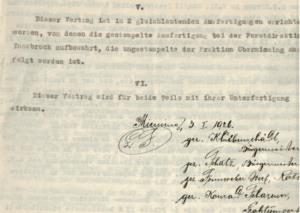 V.
Dieser Vertrag ist in 2 gleichlautenden Ausfertigungen erricht
werden, von denen die gestempelte Ausfertigung bei der Forstdirekt
Innsbruck aufbewahrt, die ungestempelte der Fraktion Obermieming au
folgt worden ist.
VI.
Dieser Vertrag wird für beide Teile mit ihrer Unterfertigung
wirksam.
Mieming, 3. I. 1926.
L. S.
gez.
Bürgermeister
gez. Schatz Bürgermeister
gez.
gez. Konrad Scharmer,